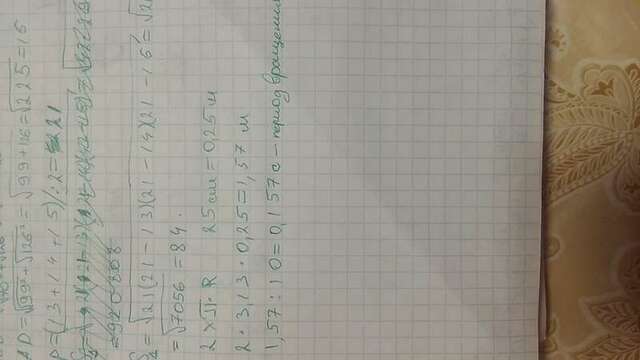 AD = √99² + √126² = √99 + 126 = √225 = 15
p = (13 + 14 + 15) : 2 = 21
S = √21(21 - 13)(21 - 14)(21 - 15
= √7056 = 84.
2 × π · R 25 см = 0,25 м
2 · 3,13 · 0,25 = 1,57 м
1,57 : 10 = 0,157 с – период вращения